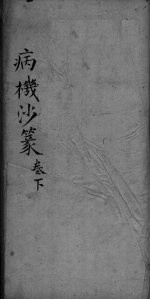 病機沙篆卷下